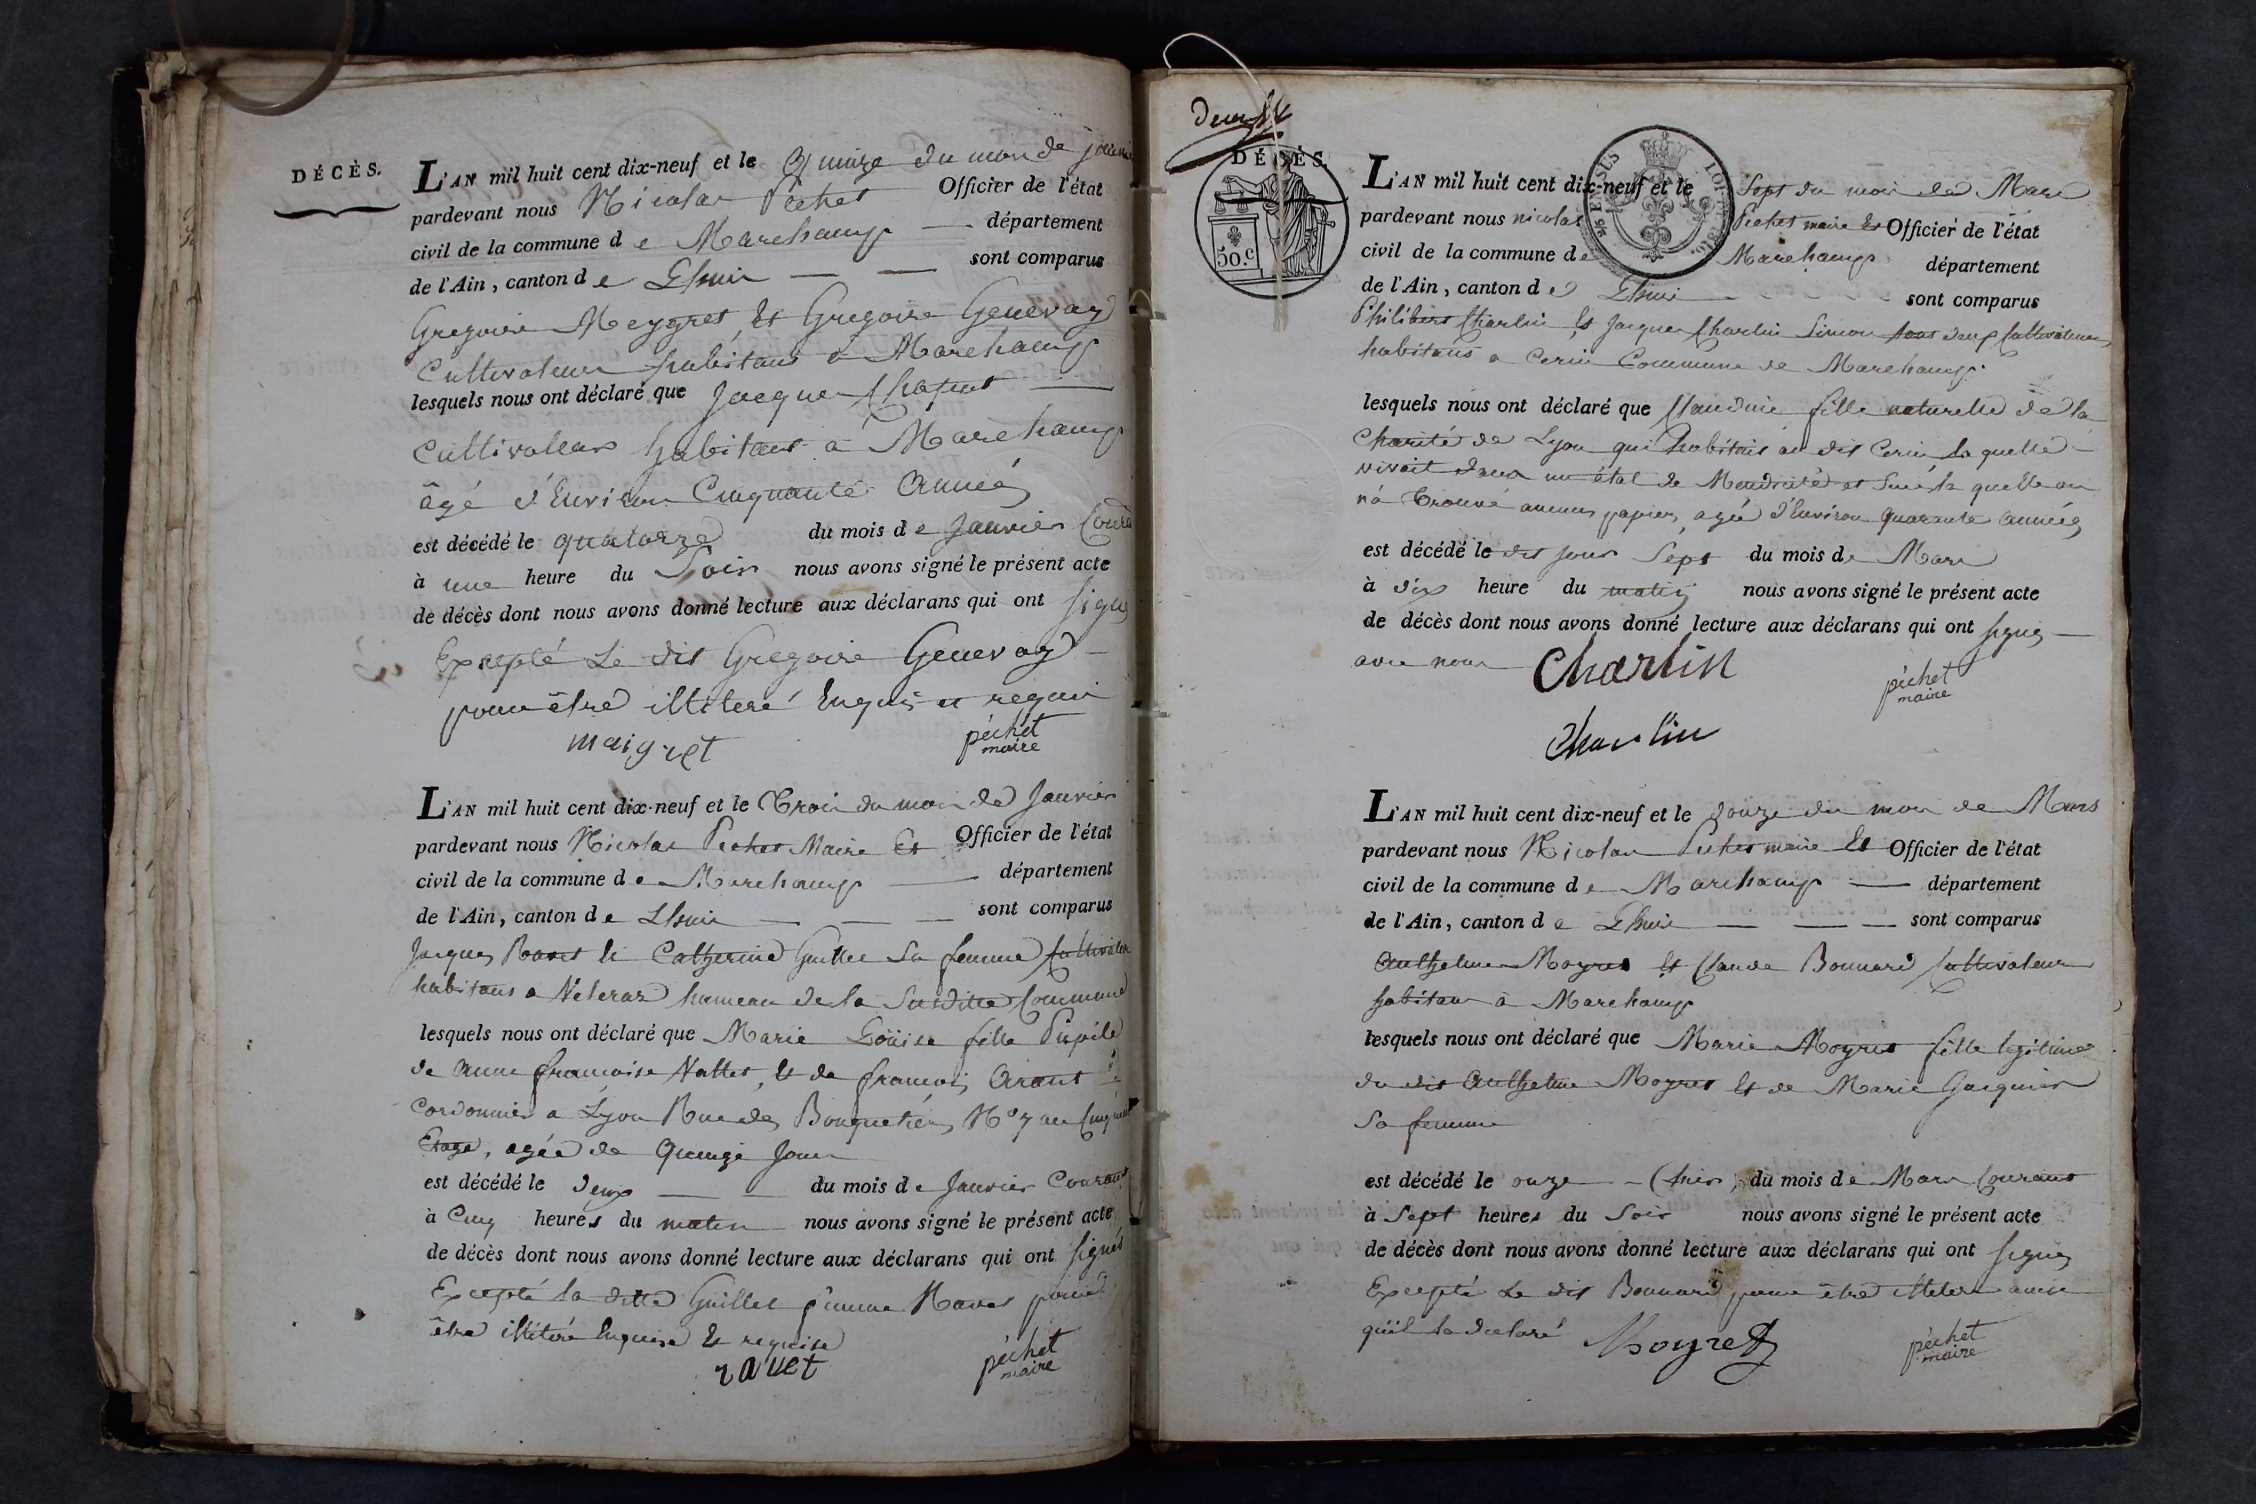 DÉCÈS.
L'AN mil huit cent dix-neuf et le quinze du mois de janvier
pardevant nous Nicolas Pechet Officier de l'état
civil de la commune de Marchamp département
de l'Ain, canton de Lhuis sont comparus
Gregoire Meygret et Gregoire Genevay
Cultivateurs habitant a Marchamp
lesquels nous ont déclaré que Jacques Chaput
Cultivateur habitant à Marchamp
âgé d'Environ Cinquante Années
est décédé le quatorze du mois de Janvier
à une heure du Soir nous avons signé le présent acte
de décès dont nous avons donné lecture aux déclarans qui ont signé
Excepté Le dit Gregoire Genevay
pour être illiteré Enquis et requis
maigret
péchet
maire
L'AN mil huit cent dix-neuf et le Trois du mois de Janvier
pardevant nous Nicolas Pechet Maire Et Officier de l'état
civil de la commune de Marchamp département
de l'Ain, canton de Lhuis sont comparus
Jacques Ravet et Catherine Guillet Sa femme Cultivateur
habitans a hameau de la Susditte Commune
lesquels nous ont déclaré que Marie Loüise fille Pupile
de Anne françoise Vallet, Et de françois
Cordonnier a Lyon Rue des Bouquetiers N° 7 au Cinquième
Etage, agée de Quinze Jours
est décédé le deux du mois de Janvier Courant
à Cinq heures du matin nous avons signé le présent acte
de décès dont nous avons donné lecture aux déclarans qui ont signés
Excepté la ditte Guillet femme Ravet pour
être illiteré Enquise Et requise
ravet
péchet
maire
DÉCÈS.
50.c
L'AN mil huit cent dix-neuf et le Sept du mois de Mars
pardevant nous nicolas Pechet maire Et Officier de l'état
civil de la commune de Marchamp département
de l'Ain, canton de Lhuis sont comparus
Philibert Charlin Et Jacques Charlin Simon tous deux Cultivateurs
habitans a Cerin Commune de Marchamp.
lesquels nous ont déclaré que Claudine fille naturelle de la
Charité de Lyon qui habitait au dit Cerin, la quelle
vivait dans un état de Mendicité et Sur la quelle on
n'a Trouvé aucuns papiers, agée d'Environ Quarante années
est décédé le dit jour Sept du mois de Mars
à dix heure du matin nous avons signé le présent acte
de décès dont nous avons donné lecture aux déclarans qui ont signés
avec nous
Charlin
péchet
maire
Charlin
L'AN mil huit cent dix-neuf et le douze du mois de Mars
pardevant nous Nicolas Pechet maire Et Officier de l'état
civil de la commune de Marchamp département
de l'Ain, canton de Lhuis sont comparus
Anthelme Moyret Et Claude Bonnard Cultivateurs
habitans à Marchamp
lesquels nous ont déclaré que Marie Moyret fille legitime
du dit Anthelme Moyret Et de Marie Jacquier
Sa femme
est décédé le onze (hier) du mois de Mars Courant
à Sept heures du Soir nous avons signé le présent acte
de décès dont nous avons donné lecture aux déclarans qui ont signés
Excepté Le dit Bonnard pour être illiteré ainsi
qu'il la declaré
Moyret
péchet
maire